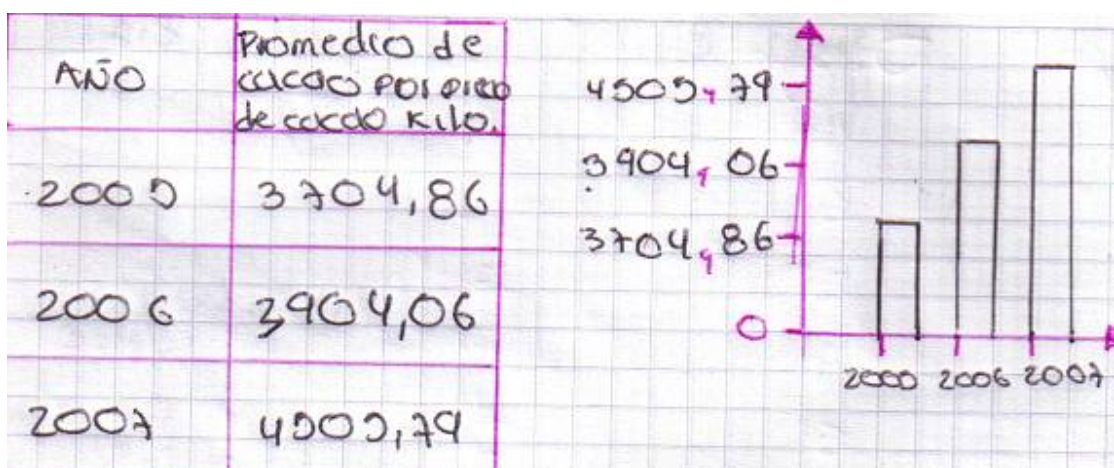 AÑO
Promedio de
cacao por precio
de cacao kilo.
2005
3704,86
2006
3904,06
2007
4505,79
4505,79
3904,06
3704,86
0
2005 2006 2007